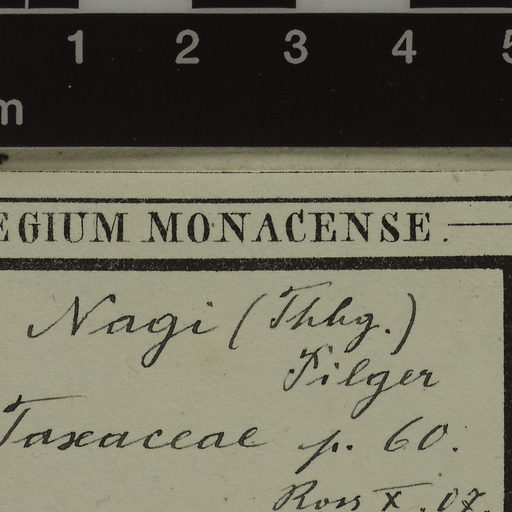 1 2 3 4 5
m
EGIUM MONACENSE.
Nagi (Thbg.)
Pilger
Taxaceae p. 60.
Ross X. 07.